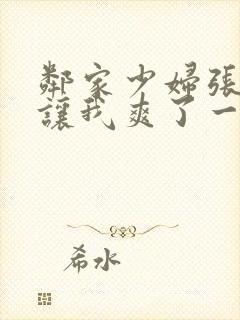 鄰家少婦張
讓我爽了一
希水